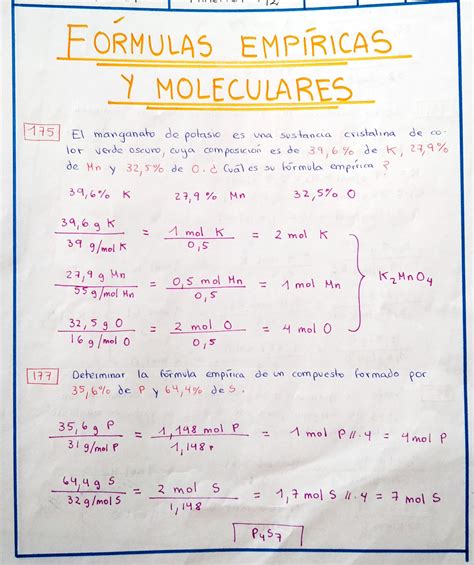 FÓRMULAS EMPÍRICAS
Y MOLECULARES
175 El manganato de potasio es una sustancia cristalina de co-
lor verde oscuro, cuya composición es de 39,6% de K, 27,9%
de Mn y 32,5% de O. ¿Cuál es su fórmula empírica?
39,6% K 27,9% Mn 32,5% O
39,6 g K / 39 g/mol K = 1 mol K / 0,5 = 2 mol K
27,9 g Mn / 55 g/mol Mn = 0,5 mol Mn / 0,5 = 1 mol Mn } K₂MnO₄
32,5 g O / 16 g/mol O = 2 mol O / 0,5 = 4 mol O
177 Determinar la fórmula empírica de un compuesto formado por
35,6% de P y 64,4% de S.
35,6 g P / 31 g/mol P = 1,148 mol P / 1,148 = 1 mol P // · 4 = 4 mol P
64,4 g S / 32 g/mol S = 2 mol S / 1,148 = 1,7 mol S // · 4 = 7 mol S
P₄S₇